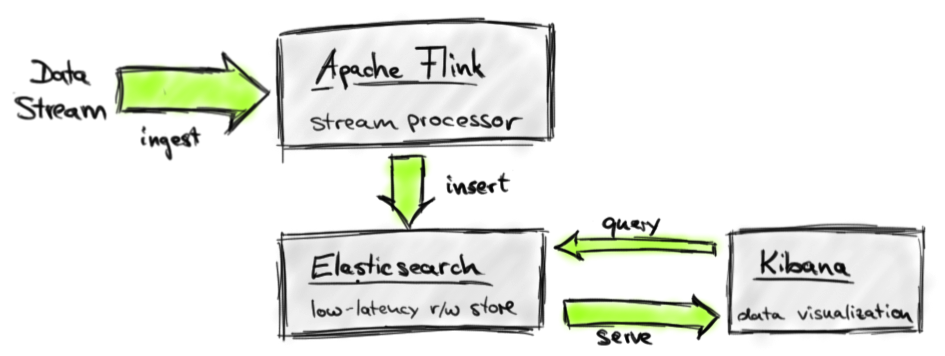 Data
Stream
ingest
Apache Flink
stream processor
insert
Elasticsearch
low-latency r/w store
query
serve
Kibana
data visualization